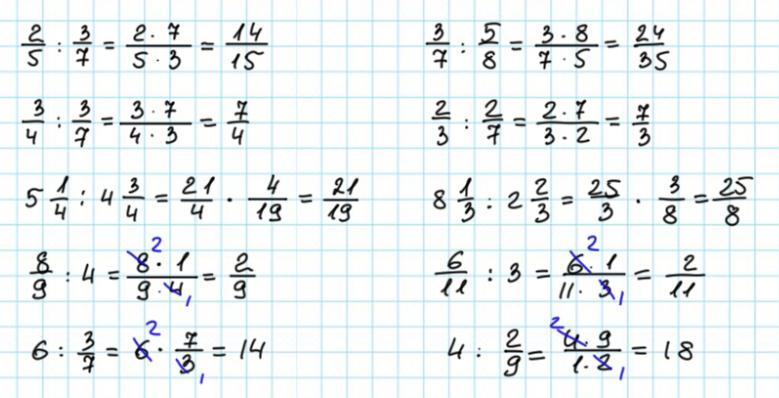 2/5 : 3/7 = 2·7/5·3 = 14/15
3/7 : 5/8 = 3·8/7·5 = 24/35
3/4 : 3/7 = 3·7/4·3 = 7/4
2/3 : 2/7 = 2·7/3·2 = 7/3
5 1/4 : 4 3/4 = 21/4 · 4/19 = 21/19
8 1/3 : 2 2/3 = 25/3 · 3/8 = 25/8
8/9 : 4 = 8 2·1/9·4 1 = 2/9
6/11 : 3 = 6 2·1/11·3 1 = 2/11
6 : 3/7 = 6 2 · 7/3 1 = 14
4 : 2/9 = 2 4·9/1·2 1 = 18